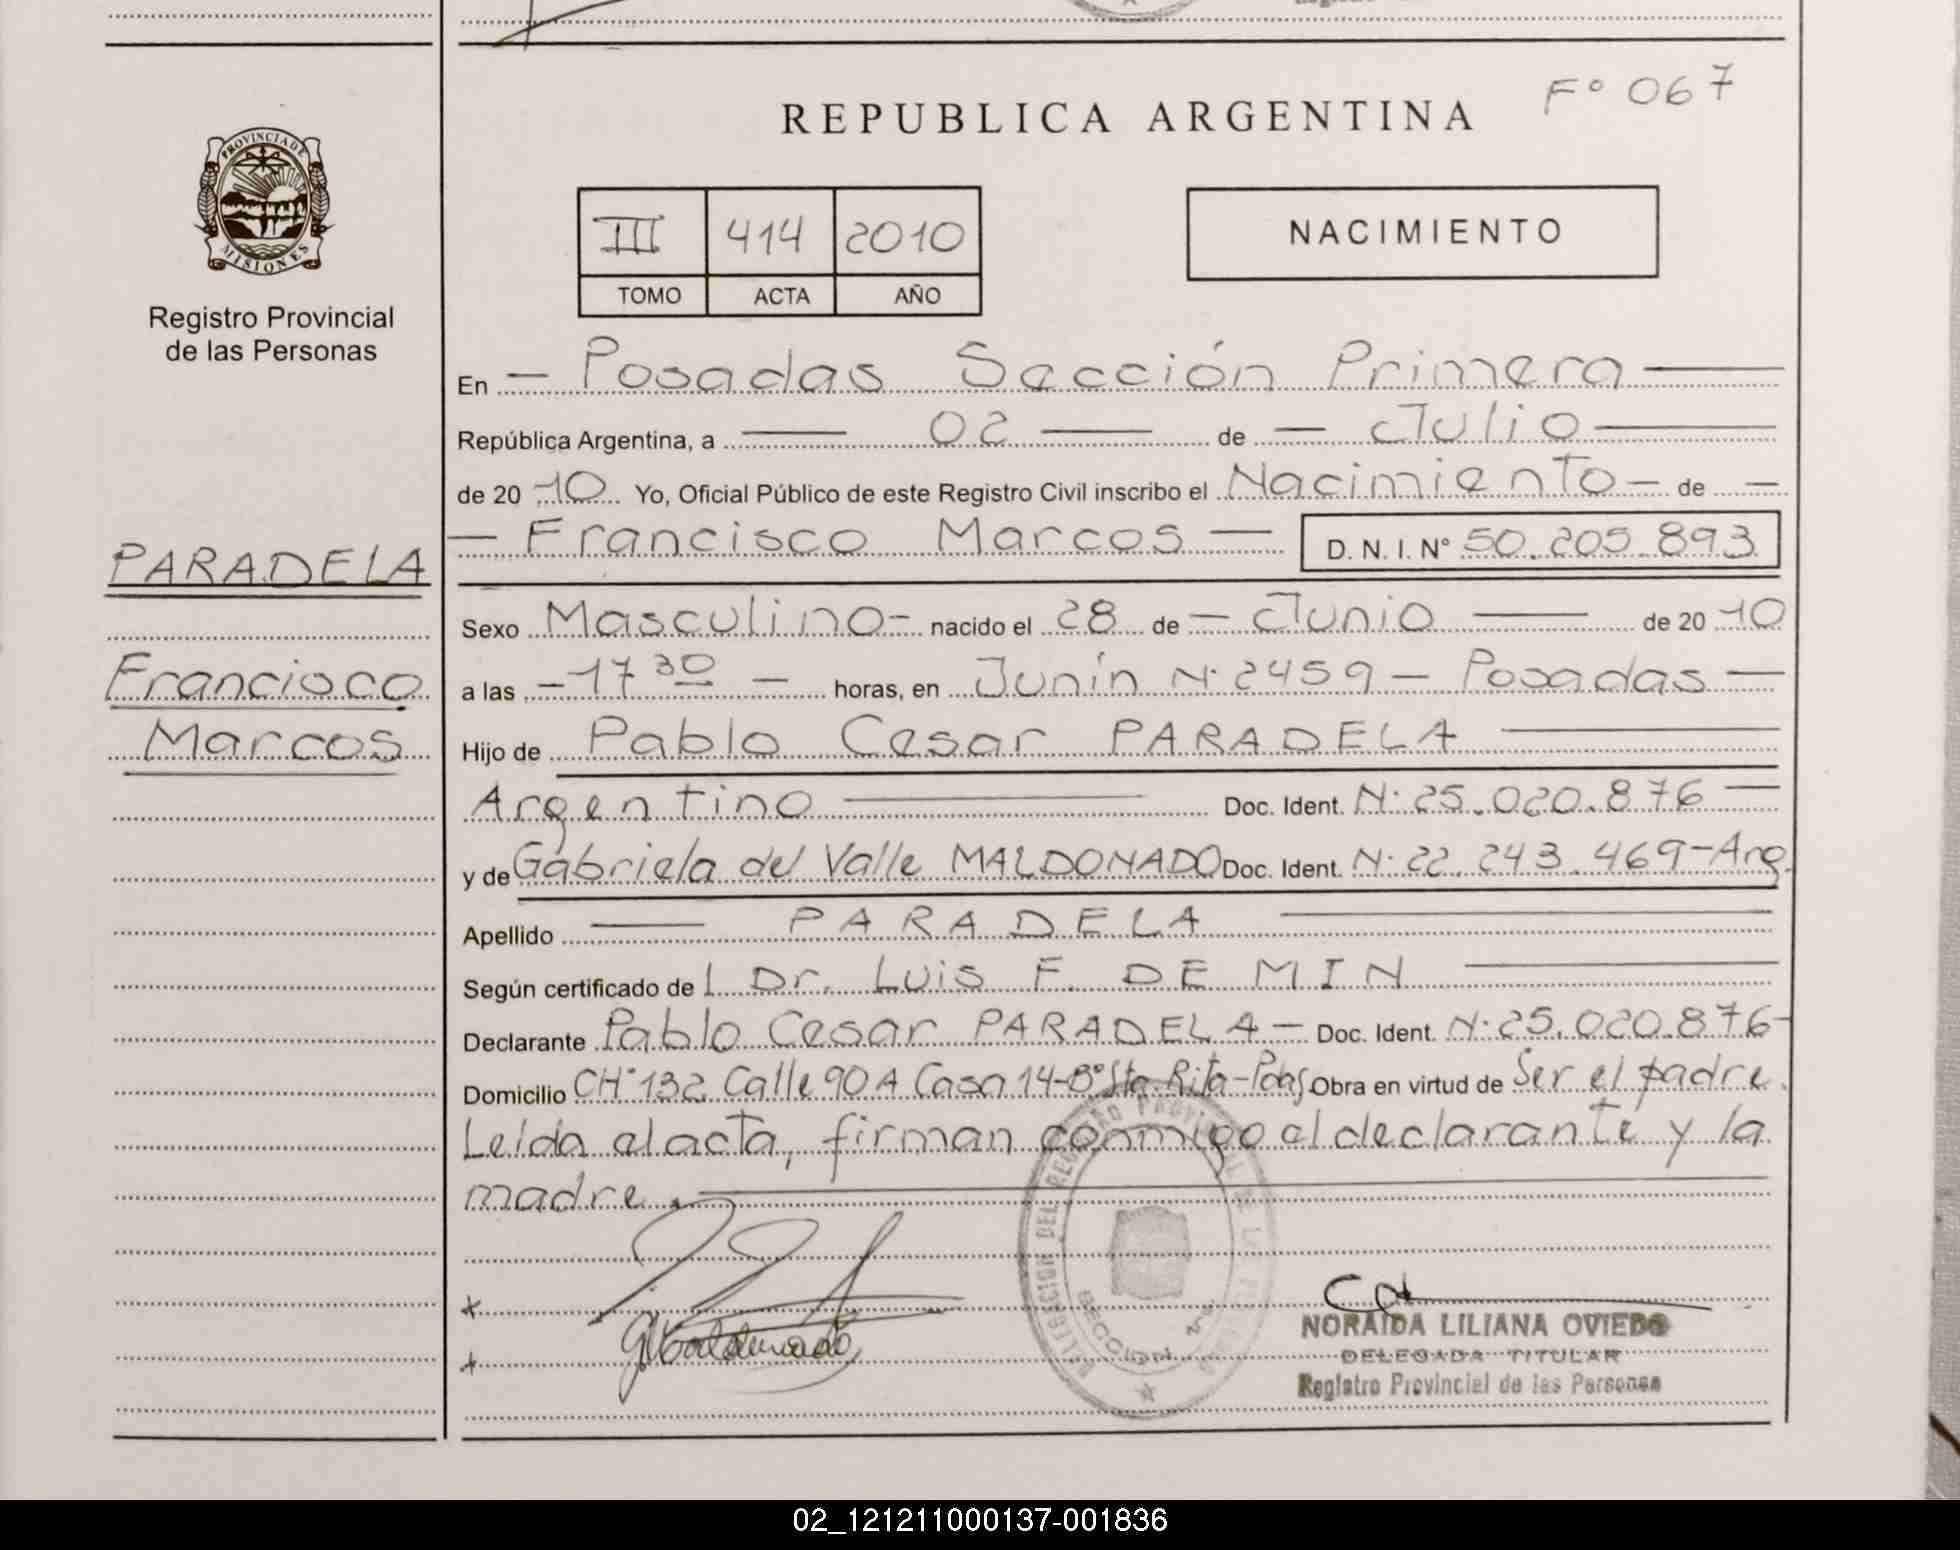 REPUBLICA ARGENTINA
Fº 067
PROVINCIA DE
MISIONES
Registro Provincial
de las Personas
III 414 2010
TOMO ACTA AÑO
NACIMIENTO
En - Posadas Sección Primera
República Argentina, a 02 de - Julio
de 20 10 Yo, Oficial Público de este Registro Civil inscribo el Nacimiento - de -
- Francisco Marcos - D. N. I. Nº 50.205.893
PARADELA
Francisco
Marcos
Sexo Masculino - nacido el 28 de - Junio de 20 10
a las - 17 30 - horas, en Junín Nº 2459 - Posadas -
Hijo de Pablo Cesar PARADELA
Argentino Doc. Ident. Nº 25.020.876 -
y de Gabriela del Valle MALDONADO Doc. Ident. Nº 22.243.469 - Arg.
Apellido PARADELA
Según certificado de l Dr. Luis F. DE MIN
Declarante Pablo Cesar PARADELA - Doc. Ident. Nº 25.020.876 -
Domicilio CHº 132 Calle 90 A Casa 14-Bº Sta. Rita-Pdas Obra en virtud de Ser el padre.
Leída el acta, firman conmigo el declarante y la
madre.
SECCION
NORAIDA LILIANA OVIEDO
DELEGADA TITULAR
Registro Provincial de las Personas
02_121211000137-001836